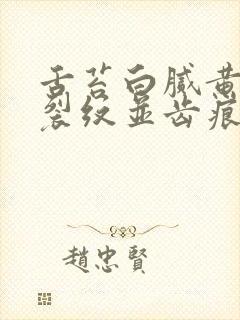 舌苔白腻黄
裂纹并齿痕
趙忠賢